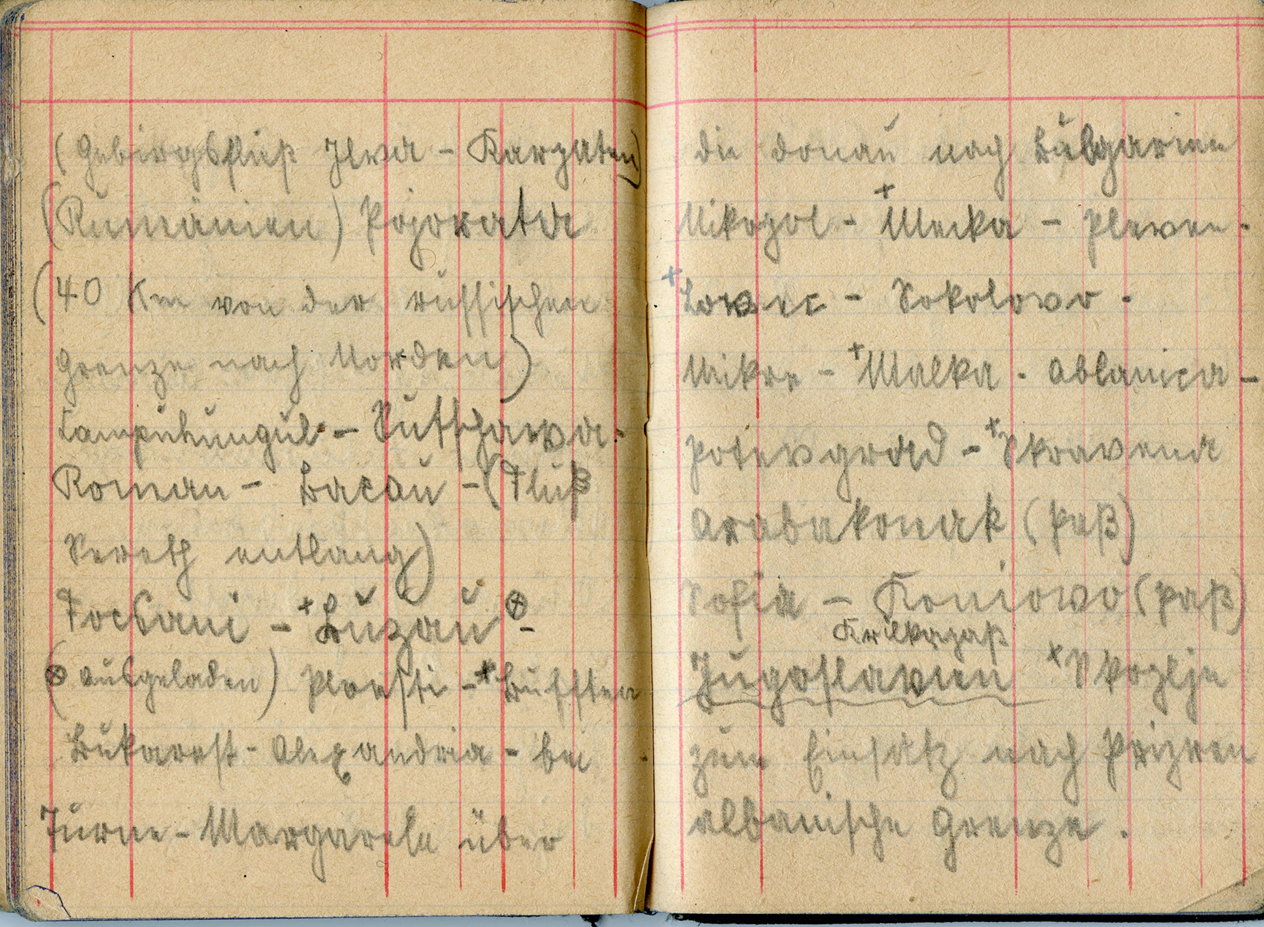 (Gebirgsfluß Ilva - Karpaten)
(Rumänien) Pojorata
(40 Km von der russischen
Grenze nach Norden)
Campuhungul - Sutschawa -
Roman - Bacau - (Fluß
Sereth entlang)
Focsani - + Buzau ⊗ -
(⊗ ausgeladen) Ploesti - + Bufften
Bukarest - Alexandria - bei
Turnu - Margarele über
die Donau nach Bulgarien
Nikopol - + Mecka - Pleven -
+ Lowec - Sokolovo -
Mikre - + Malka - Ablanica -
Potevgrad - + Skravena
Arabakonak (Paß)
Sofia - Koniowo (Paß)
Krilkapaß
Jugoslavien + Skoplje
zum Einsatz nach Prizren
albanische Grenze.